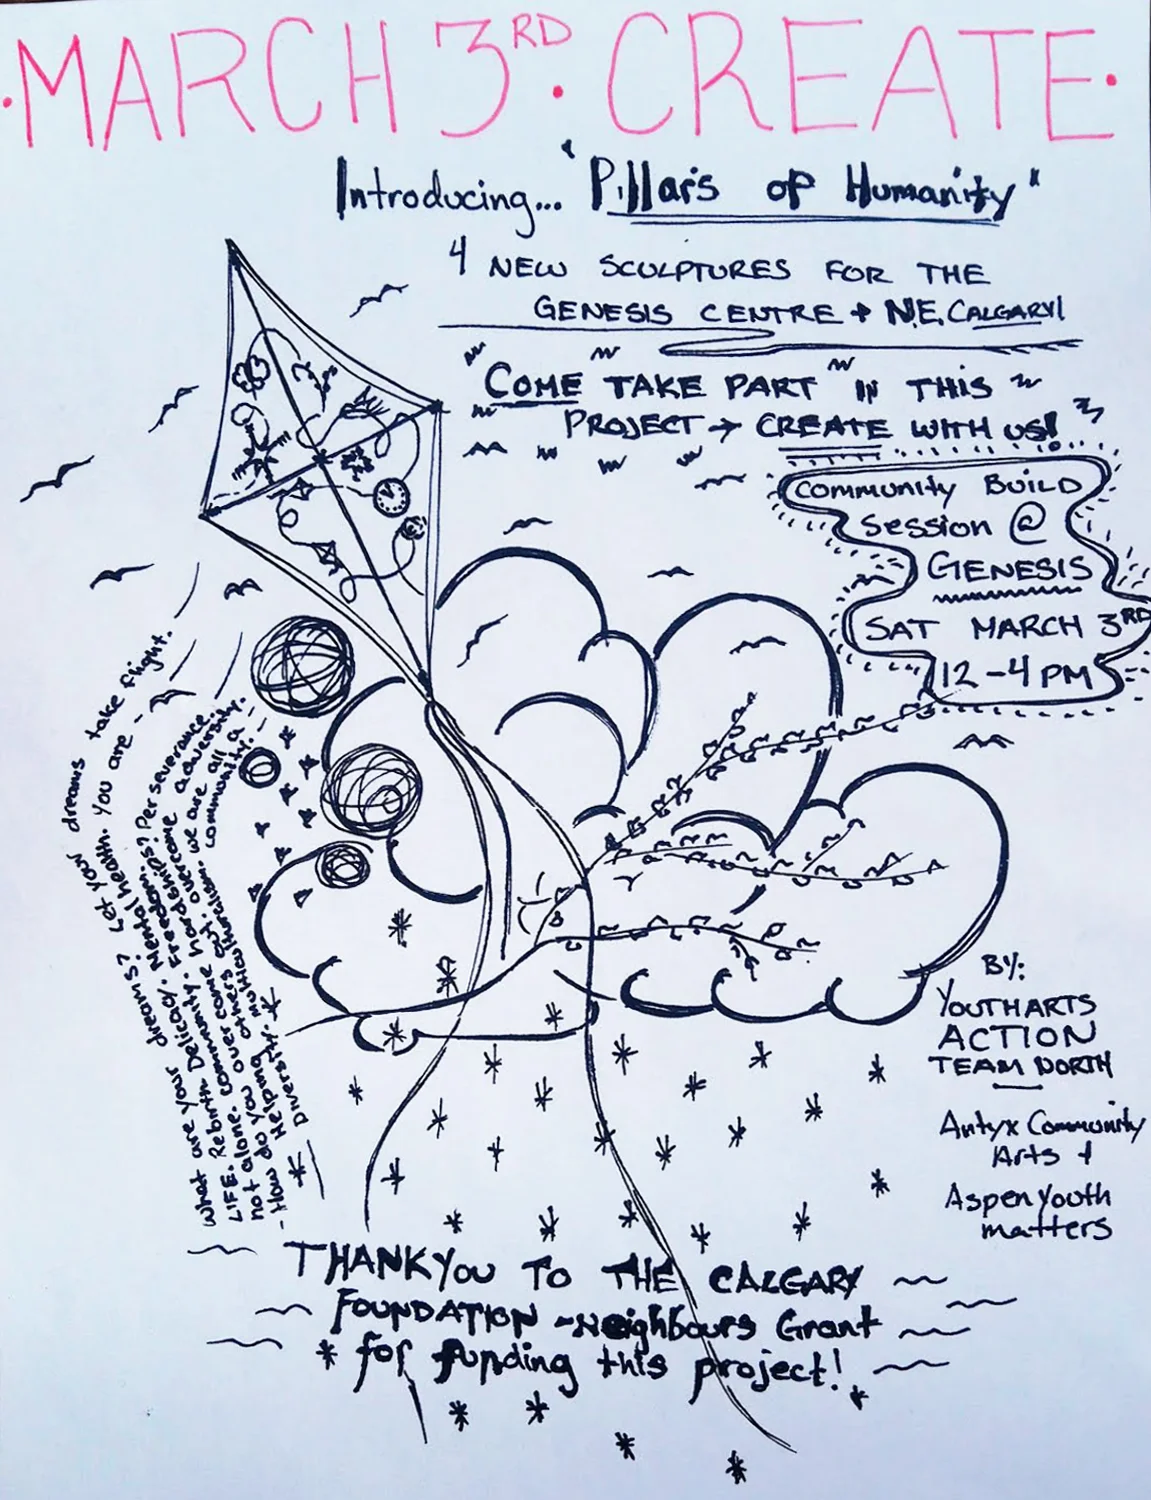 ·MARCH 3RD·CREATE·
Introducing... "Pillars of Humanity"
4 NEW SCULPTURES FOR THE
GENESIS CENTRE + N.E. CALGARY!
COME TAKE PART IN THIS
PROJECT → CREATE WITH US!
COMMUNITY BUILD
SESSION @
GENESIS
SAT MARCH 3RD
12-4 PM
What are your dreams? Let your dreams take flight.
Rebirth Delicacy. Mental health. You are -
LIFE. community. Freedom? Perseverance
not alone. Overcome hardships? adversity.
do you overcome we are all a
- How Helping others community.
Diversity.
BY:
YOUTH ARTS
ACTION
TEAM NORTH
Antyx Community
Arts +
Aspen Youth
matters
THANKYOU TO THE CALGARY
FOUNDATION ~Neighbours Grant
for funding this project!